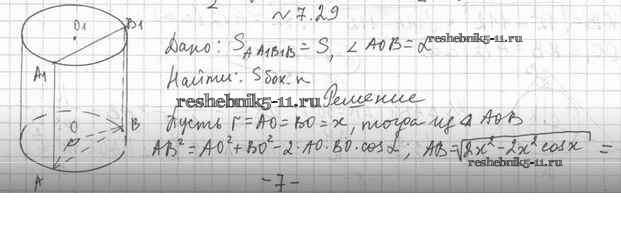 № 7.29
O1
B1
A1
Дано: S AA1B1B = S, ∠AOB = α
reshebnik5-11.ru
Найти: S бок. п
reshebnik5-11.ru
Решение
O
B
Пусть r = AO = BO = x, тогда из △ AOB
AB² = AO² + BO² - 2·AO·BO·cosα; AB = √2x² - 2x² cosx =
reshebnik5-11.ru
A
- 7 -